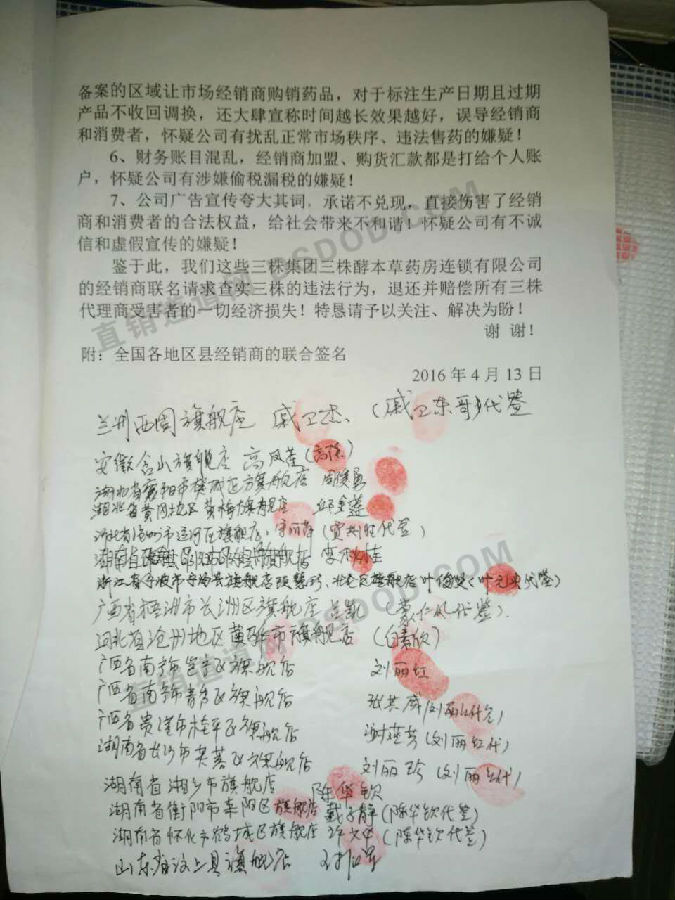 备案的区域让市场经销商购销药品，对于标注生产日期且过期
产品不收回调换，还大肆宣称时间越长效果越好，误导经销商
和消费者，怀疑公司有扰乱正常市场秩序、违法售药的嫌疑！
6、财务账目混乱，经销商加盟、购货汇款都是打给个人账
户，怀疑公司有涉嫌偷税漏税的嫌疑！
7、公司广告宣传夸大其词，承诺不兑现，直接伤害了经销
商和消费者的合法权益，给社会带来不和谐！怀疑公司有不诚
信和虚假宣传的嫌疑！
鉴于此，我们这些三株集团三株酵本草药房连锁有限公司
的经销商联名请求查实三株的违法行为，退还并赔偿所有三株
代理商受害者的一切经济损失！特恳请予以关注、解决为盼！
谢 谢！
附：全国各地区县经销商的联合签名
2016年4月13日
兰州西固旗舰店 戚卫杰、（戚卫东哥哥代签
安徽含山旗舰店 高凤莲
湖北省襄阳市樊城区旗舰店
湖北省黄冈地区黄梅旗舰店
河北省沧州市运河区旗舰店
湖南省
浙江省宁波市
广西省梧洲市长洲区旗舰店
河北省沧州地区黄骅市旗舰店
广西省南宁邕宁区旗舰店 刘丽红
广西省南宁青秀区旗舰店
广西省贵港市桂平区旗舰店 （刘丽红代）
湖南省长沙市芙蓉区旗舰店 刘丽珍（刘丽红代）
湖南省湘乡市旗舰店 陈华钦
湖南省衡阳市耒阳区旗舰店 戴子静（陈华钦代签）
湖南省怀化市鹤城区旗舰店 （陈华钦代签）
山东省汶上县旗舰店
直销道道网 ZXDOD.COM
直销道道网 ZXDOD.COM